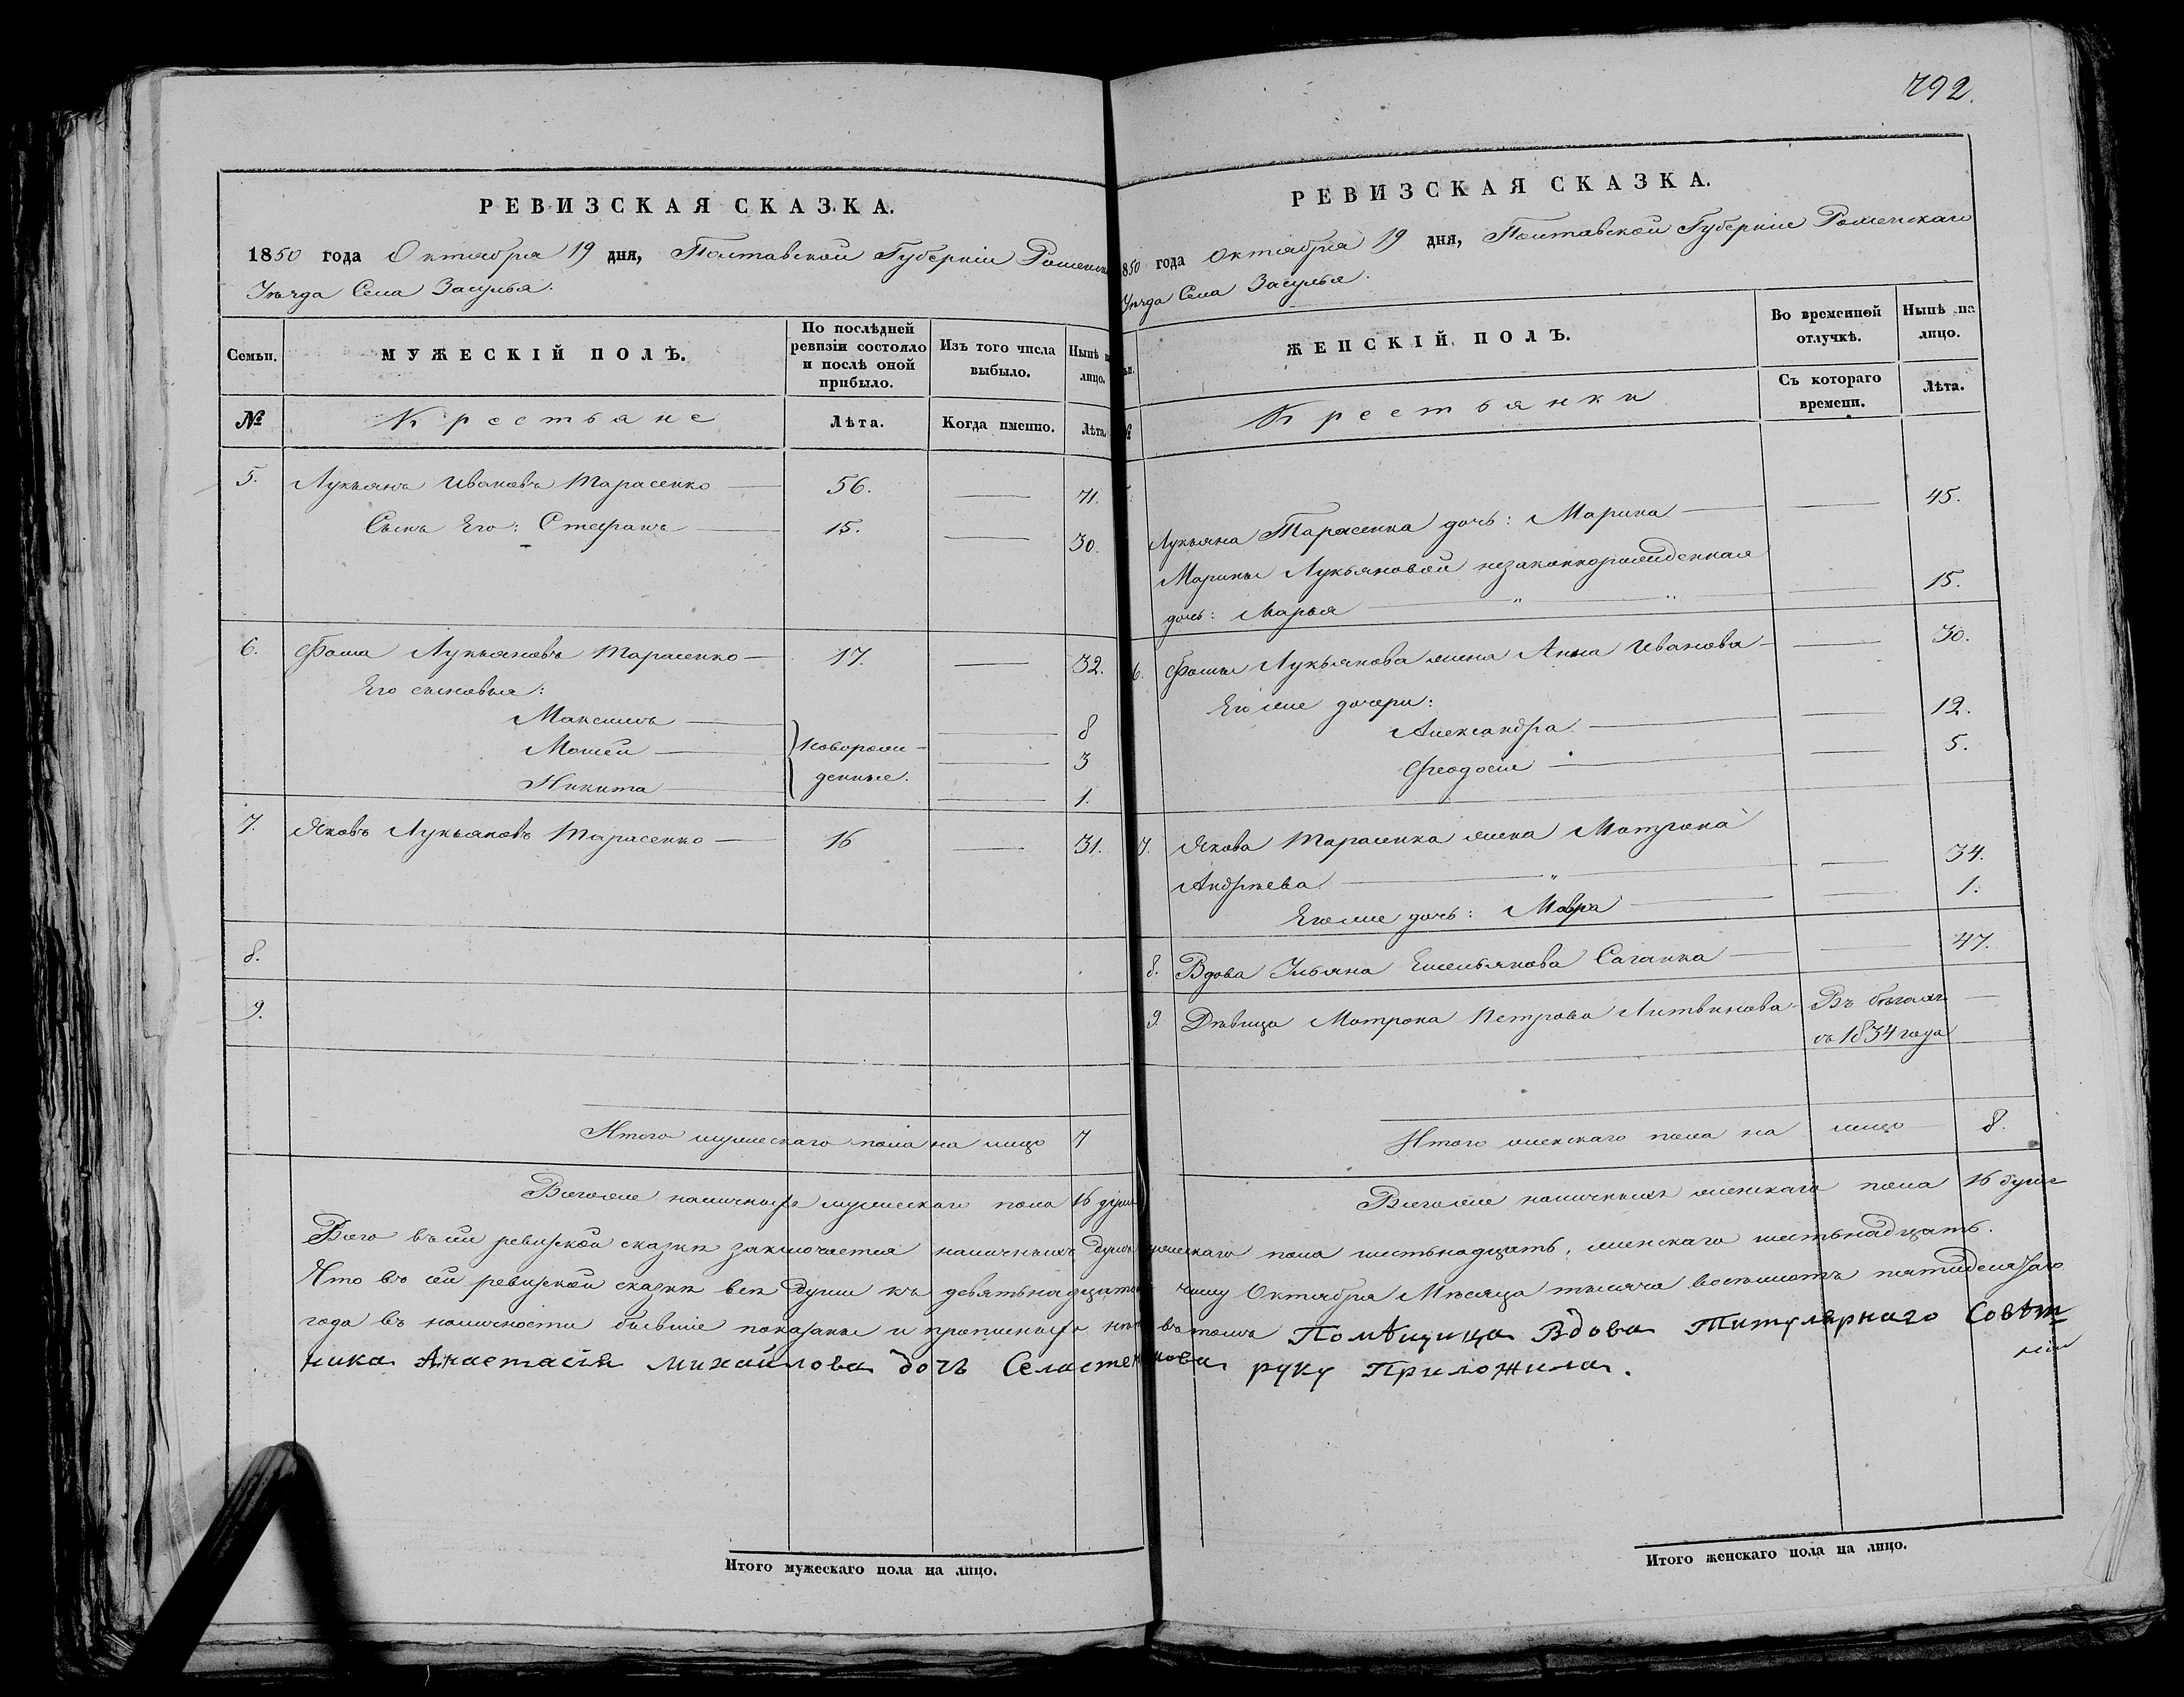 РЕВИЗСКАЯ СКАЗКА.
1850 года Октября 19 дня, Полтавской Губерніи Роменскаго
Уѣзда Села Засулья.
Семьи.
МУЖЕСКІЙ ПОЛЪ.
По послѣдней
ревизіи состояло
и послѣ оной
прибыло.
Изъ того числа
выбыло.
Нынѣ на
лицо.
№
Крестьяне
Лѣта.
Когда именно.
Лѣта.
5. Лукьянъ Ивановъ Тарасенко — 56. — 71.
Сынъ Его: Стефанъ — 15. — 30.
6. Фома Лукьяновъ Тарасенко — 17. — 32.
Его сыновья:
Максимъ — — 8
Мошей — новорож- — 3
Никита — денные. — 1.
7. Яковъ Лукьяновъ Тарасенко — 16 — 31.
8.
9.
Итого мужескаго пола на лицо 7
Всегоже наличныхъ мужескаго пола 16 душъ
792.
РЕВИЗСКАЯ СКАЗКА.
1850 года Октября 19 дня, Полтавской Губерніи Роменскаго
Уѣзда Села Засулья.
ЖЕНСКІЙ ПОЛЪ.
Во временной
отлучкѣ.
Нынѣ на
лицо.
№
Крестьянки
Съ котораго
времени.
Лѣта.
Лукьяна Тарасенка дочь: Марина — — 45.
Марины Лукьяновой незаконнорожденная
дочь: Марья — " — " — 15.
6. Фомы Лукьянова жена Анна Иванова — — 30.
Егоже дочери:
Александра — — 12.
Феодосія — — 5.
7. Якова Тарасенка жена Матрона
Андреева — " — 34.
Егоже дочь: Мавра — — 1.
8. Вдова Ульяна Емельянова Саганка — — 47.
9. Дѣвица Матрона Петрова Литвинова — Въ бѣгахъ —
съ 1834 года
Итого женскаго пола на лицо 8.
Всегоже наличныхъ женскаго пола 16 душъ
Всего въ сей ревизской сказкѣ заключается наличныхъ душъ мужескаго пола шестьнадцать, женскаго шестьнадцать.
Что въ сей ревизской сказкѣ всѣ души къ девятьнадцатому числу Октября Мѣсяца тысяча восемьсотъ пятидесятаго
года въ наличности бывшіе показаны и прописныхъ нѣтъ въ томъ Помѣщица Вдова Титулярнаго Совѣт
ника Анастасія Михайлова дочъ Селастенникова руку Приложила.
Итого мужескаго пола на лицо.
Итого женскаго пола на лицо.